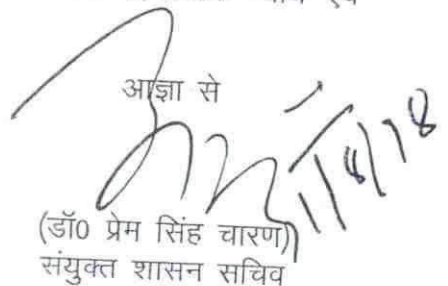 आज्ञा से
1/8/18
(डॉ0 प्रेम सिंह चारण)
संयुक्त शासन सचिव